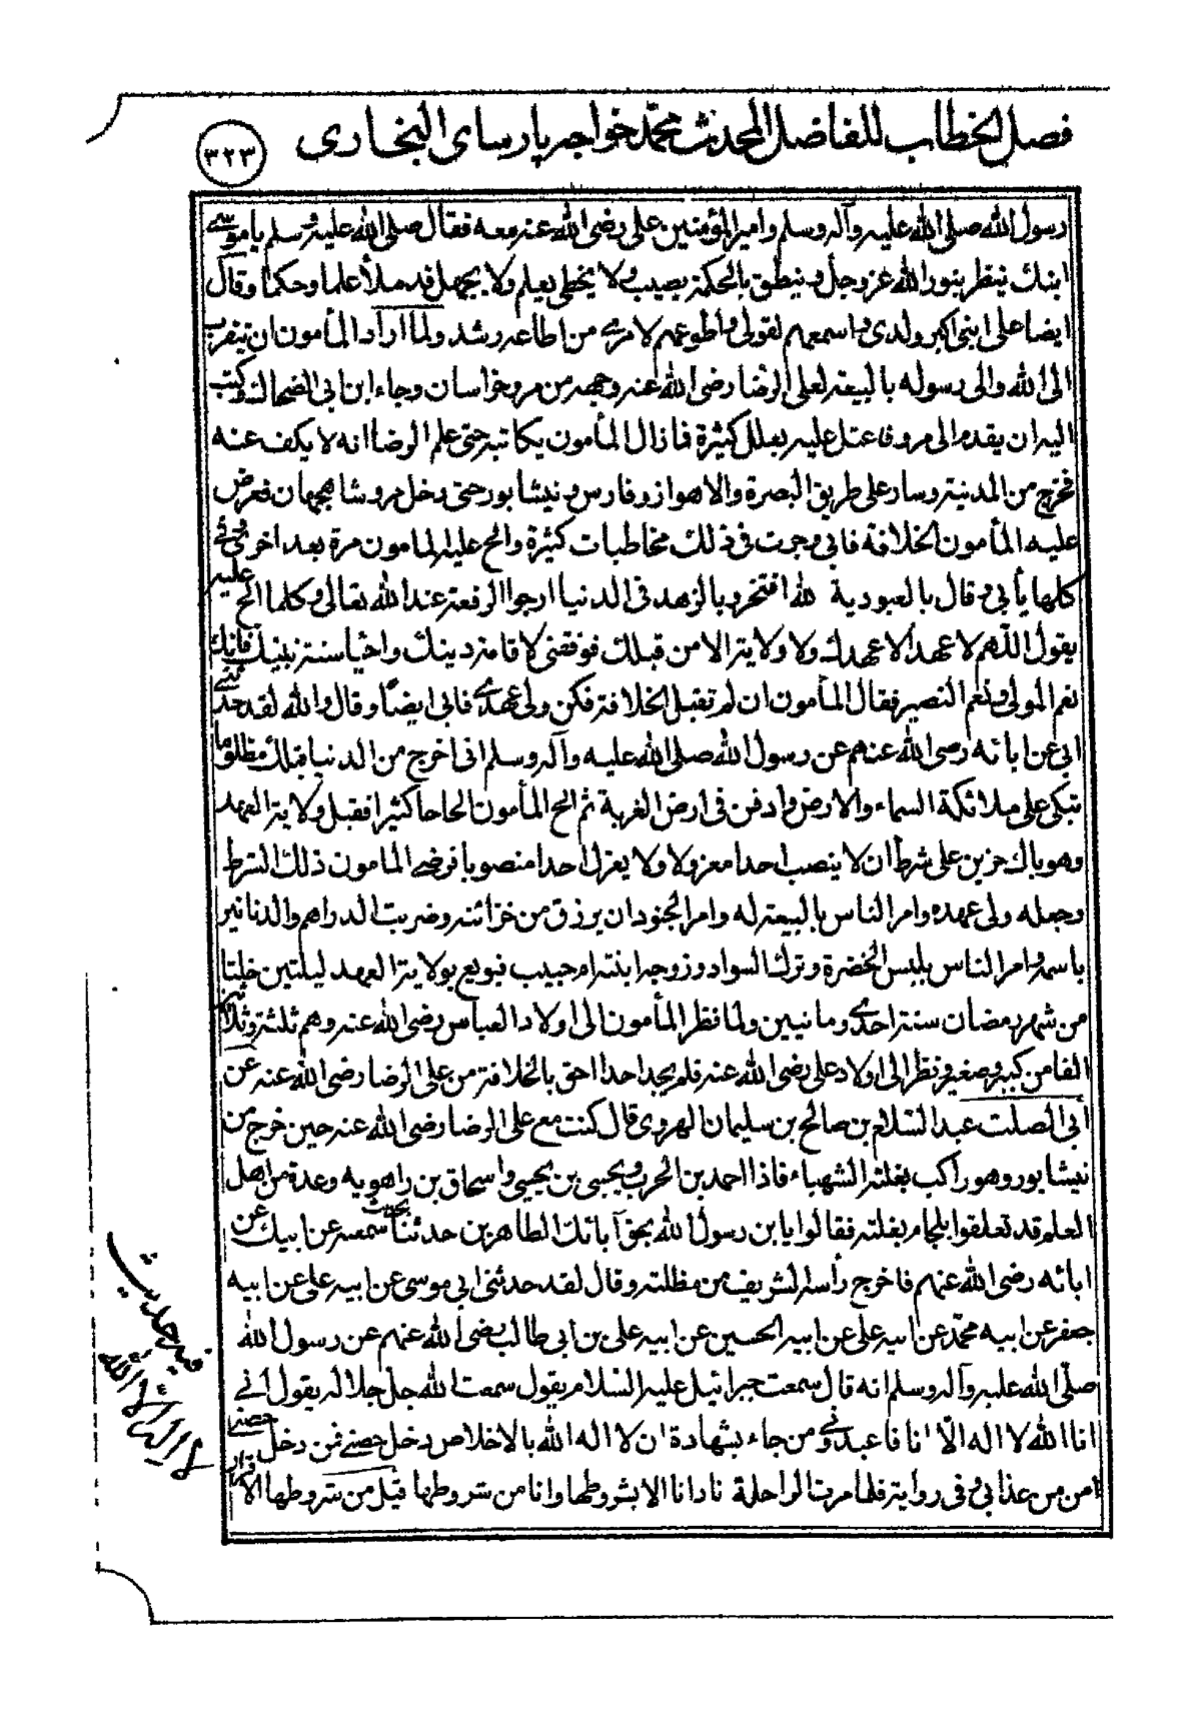 فصل الخطاب للفاضل المحدث محمد خواجه پارسای البخاری
٣٢٣
رسول الله صلى الله عليه وآله وسلم وامير المؤمنين على رضى الله عنه معه فقال صلى الله عليه وسلم يا موسى
ابنك ينظر بنور الله عز وجل وينطق بالحكمة يصيب ولا يخطى يعلم ولا يجهل قد ملأ علما وحكما وقال
ايضا على ابنى اكبر ولدى واسمعهم لقولى واطوعهم لامرى من اطاعه رشد ولما اراد المأمون ان يتقرب
الى الله والى رسوله بالبيعة لعلى الرضا رضى الله عنه وجهه من مرو خراسان وجاء ابن ابى الضحاك وكتب
اليه ان يقدم الى مرو فاعتل عليه بعلل كثيرة فما زال المأمون يكاتبه حتى علم الرضا انه لا يكف عنه
فخرج من المدينة وسار على طريق البصرة والاهواز وفارس ونيشابور حتى دخل مرو شاهجهان فعرض
عليه المأمون الخلافة فابى وجرت فى ذلك مخاطبات كثيرة والح عليه المامون مرة بعد اخرى وفى
كلها يأبى وقال بالعبودية لله افتخر وبالزهد فى الدنيا ارجوا الرفعة عند الله تعالى وكلما الح عليه
يقول اللهم لا عهد الا عهدك ولا ولاية الا من قبلك فوفقنى لاقامة دينك واحيا سنة نبيك فانك
نعم المولى ونعم النصير فقال المأمون ان لم تقبل الخلافة فكن ولى عهدى فابى ايضا وقال والله لقد حدثنى
ابى عن ابائه رضى الله عنهم عن رسول الله صلى الله عليه وآله وسلم انى اخرج من الدنيا قبلك مظلوما
تبكى على ملائكة السماء والارض وادفن فى ارض الغربة ثم الح المأمون الحاحا كثيرا فقبل ولاية العهد
وهو باك حزين على شرط ان لا ينصب احدا معزولا ولا يعزل احدا منصوبا فرضى المامون ذلك الشرط
وجعله ولى عهده وامر الناس بالبيعة له وامر الجنود ان يرزق من خزائنه وضربت الدراهم والدنانير
باسمه وامر الناس بلبس الخضرة وترك السواد وزوجه ابنته ام حبيب فبويع بولاية العهد ليلتين خلتا
من شهر رمضان سنة احدى ومانيين ولما نظر المأمون الى اولاد العباس رضى الله عنه وهم ثلثة وثلاثين
الفا من كبير وصغير ونظر الى اولاد على رضى الله عنه فلم يجد احدا احق بالخلافة من على الرضا رضى الله عنه عن
أبى الصلت عبد السلام بن صالح بن سليمان الهروى قال كنت مع على الرضا رضى الله عنه حين خرج من
نيشابور وهو راكب بغلته الشهباء فاذا احمد بن الحرب ويحيى بن يحيى واسحاق بن راهويه وعدة من اهل
العلم قد تعلقوا بلجام بغلته فقالوا يا بن رسول الله بحق آبائك الطاهرين حدثنا بحديث سمعته عن ابيك عن
ابائه رضى الله عنهم فاخرج رأسه الشريف من مظلته وقال لقد حدثنى ابى موسى عن ابيه على عن ابيه
جعفر عن ابيه محمد عن ابيه على عن ابيه الحسين عن ابيه على بن ابى طالب رضى الله عنهم عن رسول الله
صلى الله عليه وآله وسلم انه قال سمعت جبرائيل عليه السلام يقول سمعت الله جل جلاله يقول انى
انا الله لا اله الا انا فاعبدنى ومن جاء بشهادة ان لا اله الا الله بالاخلاص دخل حصنى فمن دخل حصنى
امن من عذابى وفى رواية فلما مرت الراحلة نادانا الا بشروطها وانا من شروطها قيل من شروطها الاقرار
فيه حديث
لا اله الا الله